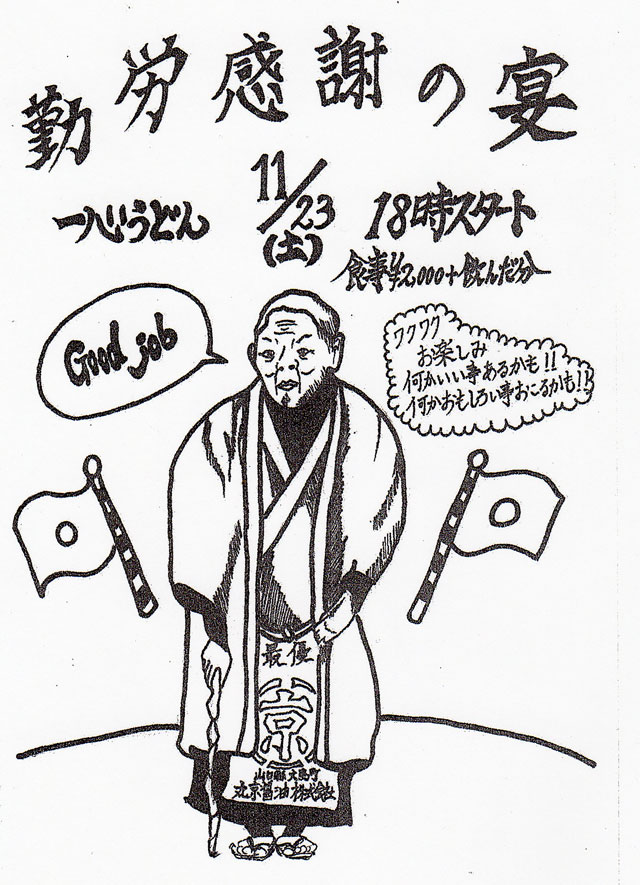 勤労感謝の宴
一八いうどん
11/23
(土)
18時スタート
食事¥2,000+飲んだ分
Good job
ワクワク
お楽しみ
何かいい事あるかも!!
何かおもしろい事おこるかも!!
最優
京
山口県大島町
醤油株式会社